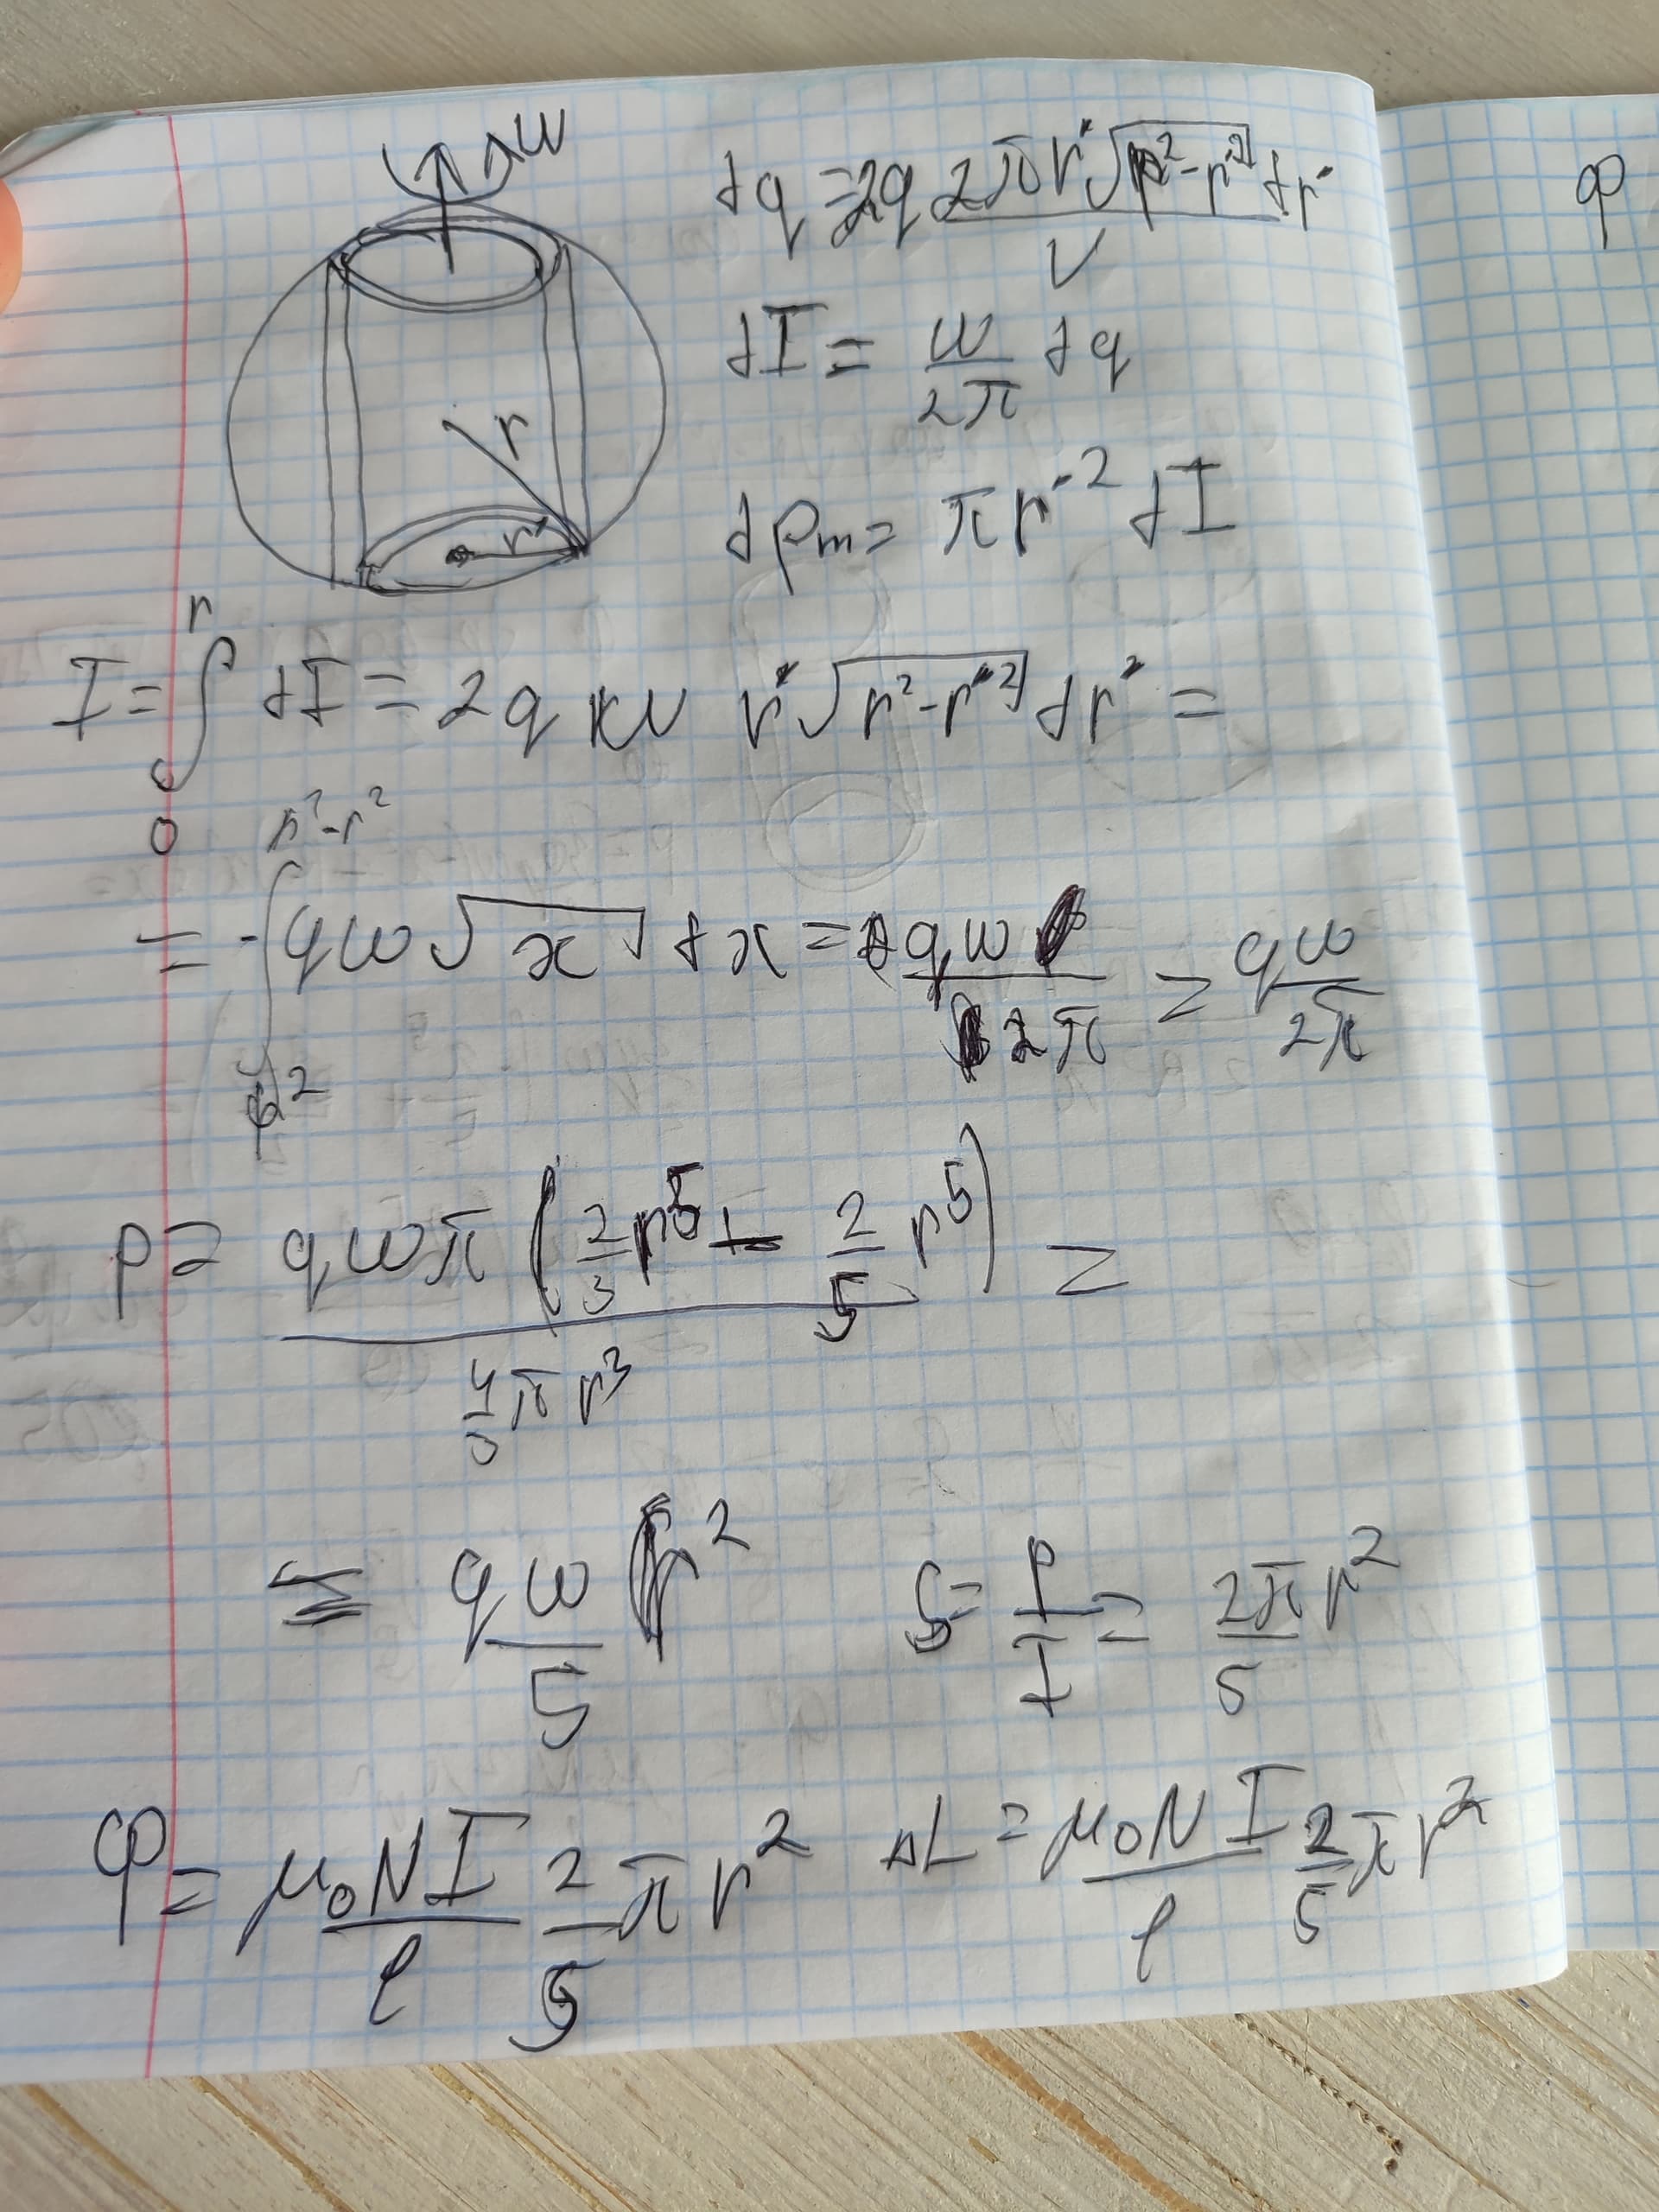 ω
dq = 2q 2πr'√(r²-r'²) dr' / V
φ
dI = ω/2π dq
r
dpₘ = πr'² dI
r'
I = ∫₀ʳ dI = 2qω r'√(r²-r'²) dr' =
= -∫ qω√x dx = qω/2π = qω/2π
r²-r²
r²
p = qωπ(2/3 r⁵ - 2/5 r⁵) / 4/3 πr³ =
= qω/5 r² S = p/I = 2π/5 r²
φ = μ₀NI/l 2/5 πr² ΔL = μ₀NI/l 2/5 πr²